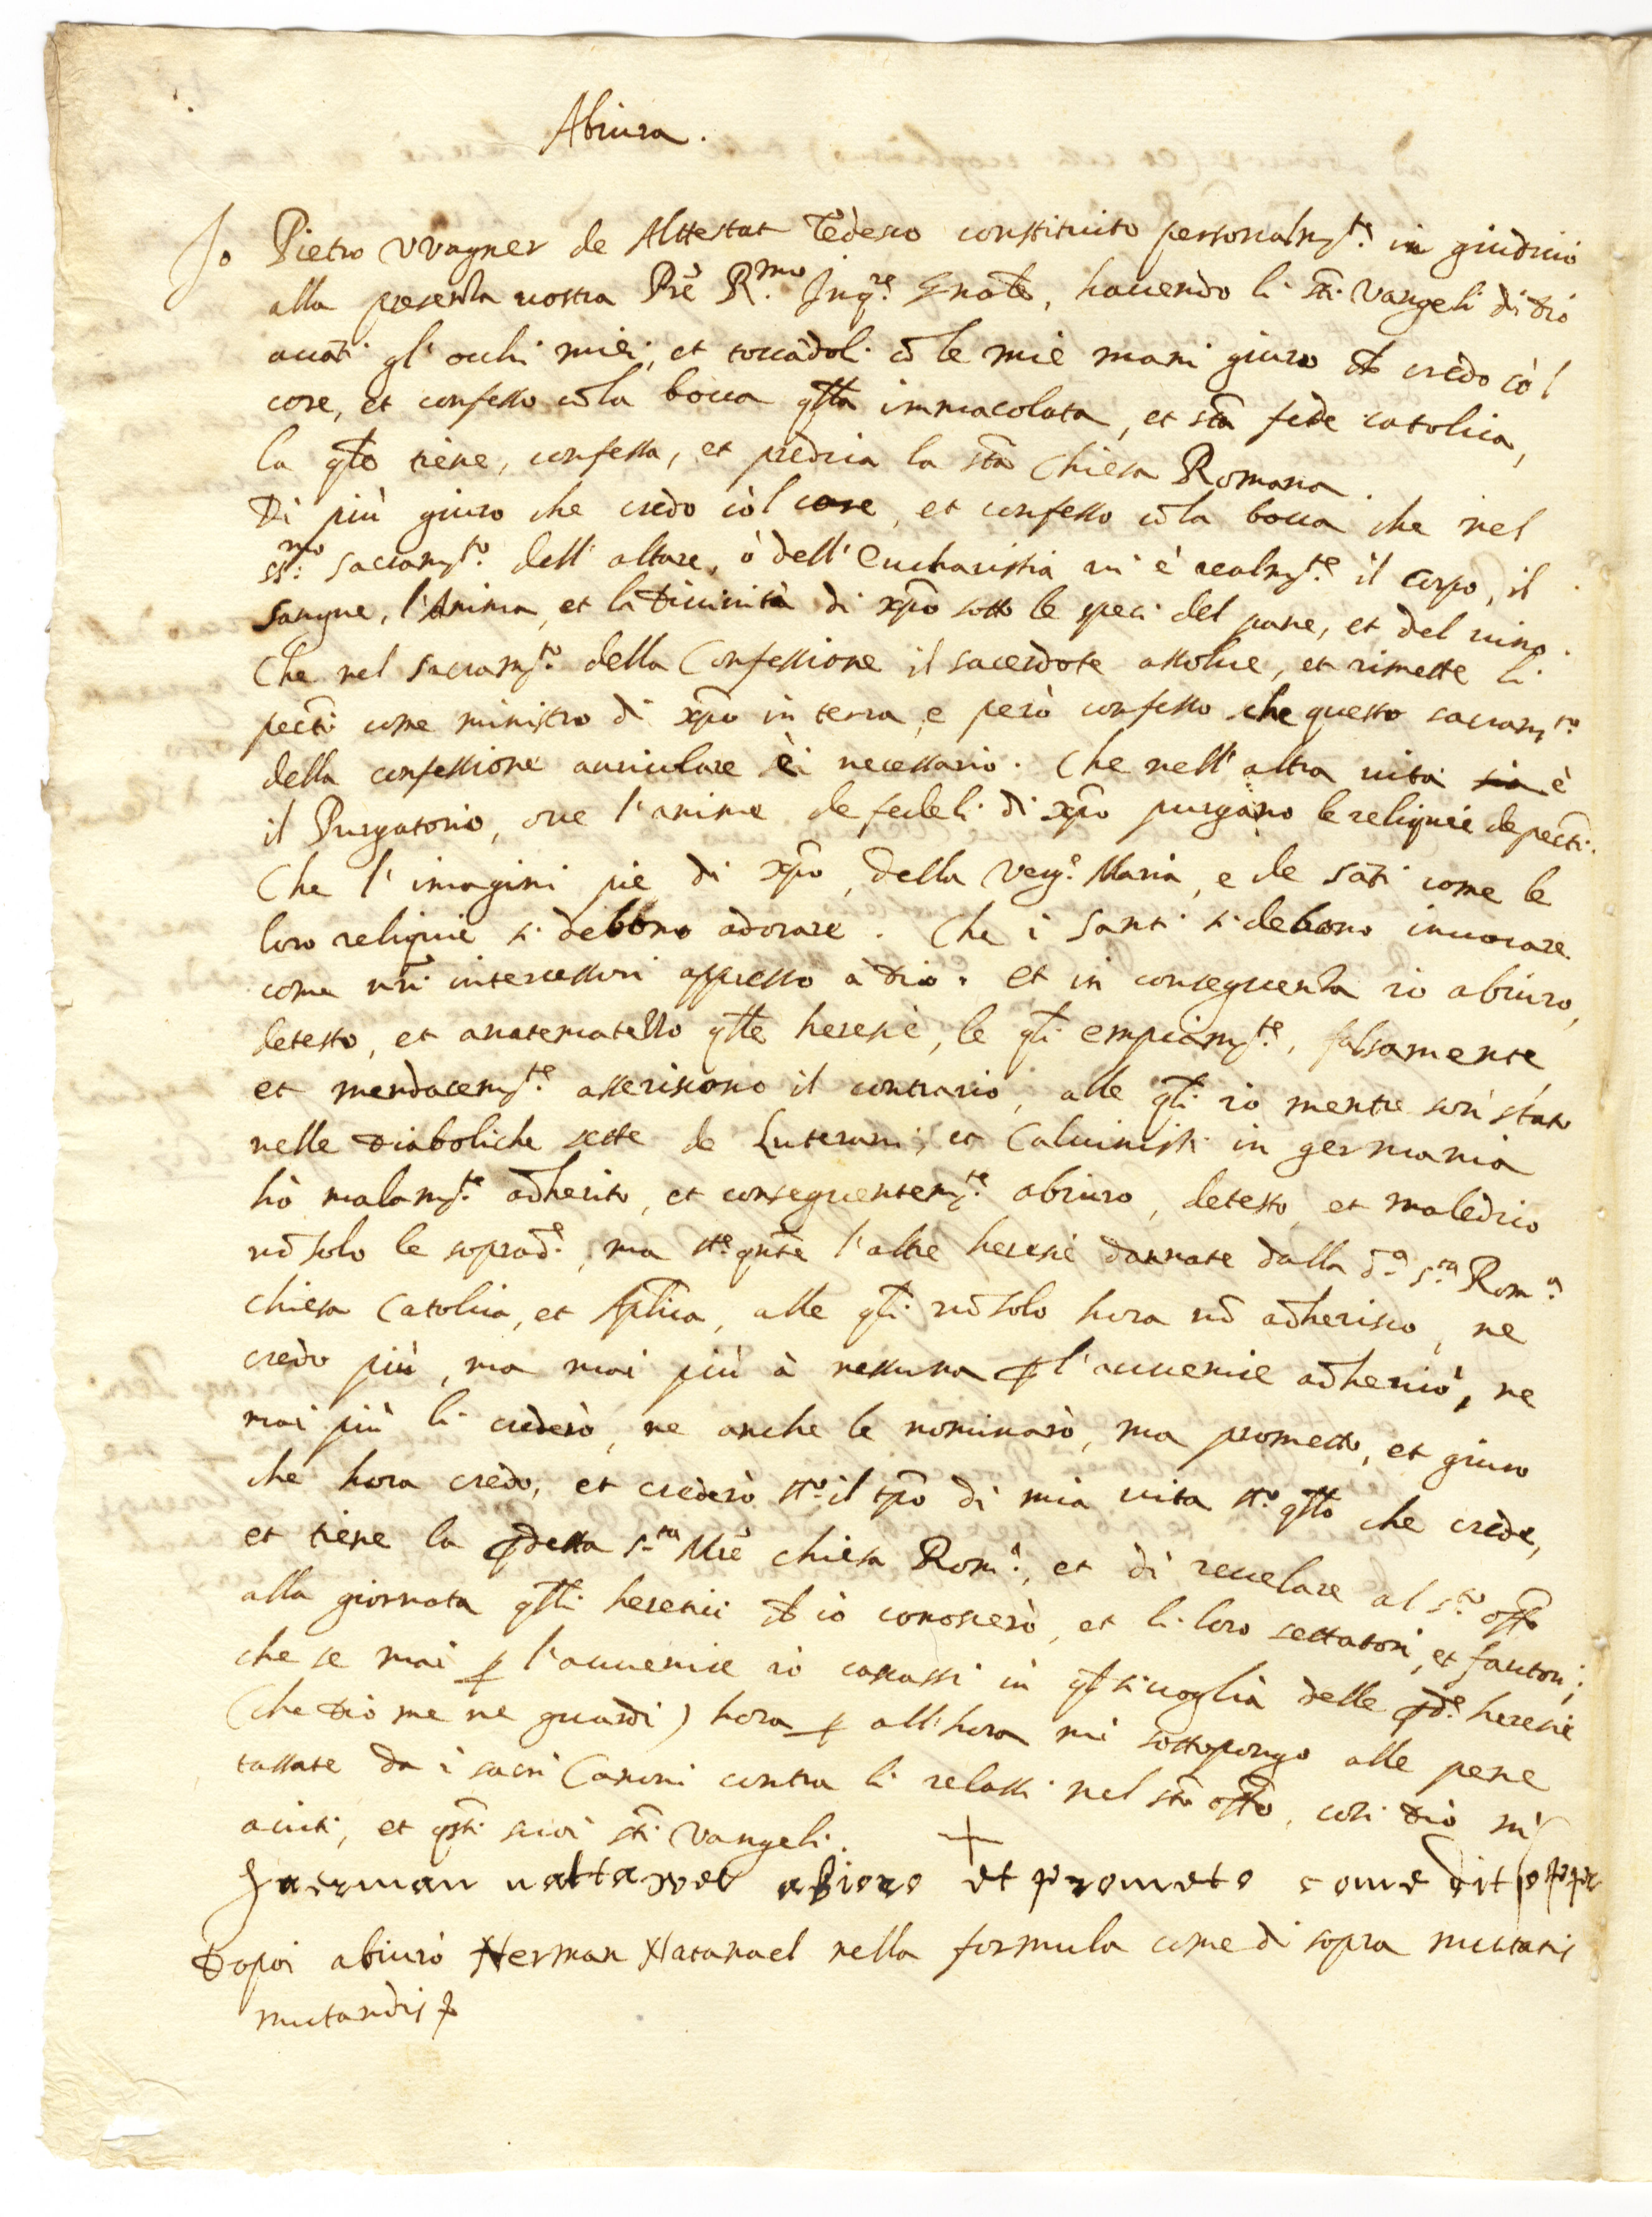 Abiura.
Io Pietro VVagner de Alttestat Tedesco constituito personalmte. in giuditio
alla presenza vostra Prē R.mo Inqre. Gnāle, havendo li sti. Vangeli di Dio
auāti gl' occhi miei, et toccādoli cō le mie mani giuro ch credo cō l
core, et confesso cō la bocca qlla immacolata, et stā fede catolica,
la qle tiene, confessa, et predica la stā Chiesa Romana.
Di più giuro che credo cōl core, et confesso cō la bocca che nel
SS.mo sacramto. dell' altare, ò dell' Eucharistia vi è realmte. il corpo, il
sangue, l'Anima, et la Divinità di xpō sotto le speci del pane, et del vino.
Che nel sacramto. della Confessione il sacerdote assolve, et rimette li
pecti come ministro di xpō in terra, e però confesso che questo sacramto.
della confessione auriculare è necessario. Che nell' altra vita è
il Purgatorio, ove l'anime de fedeli di xpō purgano le reliquie de pecti.
Che l' imagini pie di xpō, della Verge. Maria, e de sāti come le
loro reliquie si debbono adorare. Che i Santi si debono invocare
come nri intercessori appresso a Dio. et in conseguenza io abiuro,
detesto, et anatematizzo qlle heresie, le qli empiamte., falsamente,
et mendacemte. asseriscono il contrario, alle qli io mentre son stato
nelle Diaboliche sette de Luterani, et Calvinisti in germania
hò malamte. adherito, et conseguentemte. abiuro, detesto, et maledico
nō solo le sopradē., ma tte. qnte l'altre heresie dannate dalla d.a s.ta Rom.a
chiesa Catolica, et Aplica, alle qli nō solo hora nō adherisco, ne
credo più, ma mai più à nessuna p l'avvenire adherirò, ne
mai più li crederò, ne anche le nominarò, ma prometto, et giuro
che hora credo, et crederò tto. il tpō di mia vita tto. qllo che crede,
et tiene la pdetta s.ta Mrē chiesa Rom.a, et di revelare al s.to offo
alla giornata qlli heretici ch io conoscerò, et li loro settatori, et fautori;
che se mai p l'avvenire io cascassi in qlsivoglia delle pde. heresie
(che Dio me ne guardi) hora p all'hora mi sottopongo alle pene
tassate da i sacri Canoni contra li relassi nel sto offo, così Dio mi
aiuti, et qsti suoi sti Vangeli. +
et prometo come dit
Dopoi abiurò Herman Natanael nella formula come di sopra mutatis
mutandis